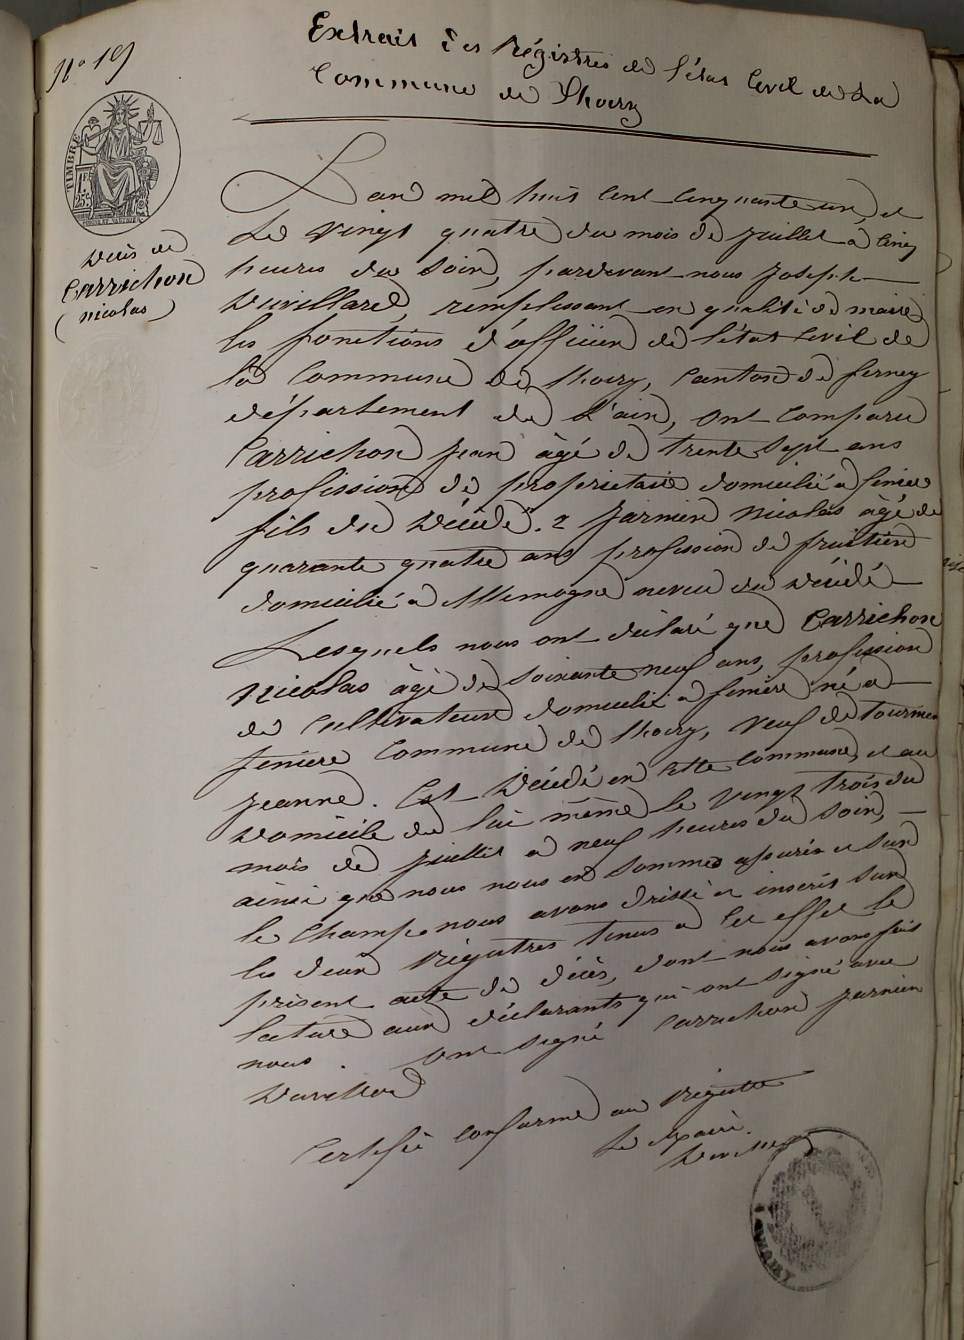 N° 19
Extrait des Régistres de l'état Civil de La
Commune de Thoiry
TIMBRE
1F. 25c.
Décès de
Carrichon
(nicolas)
L'an mil huit cent cinquante un et
Le vingt quatre du mois de Juillet à cinq
heures du soir, pardevant nous Joseph
Duvillard, remplissant en qualité de maire
les fonctions d'officier de l'état Civil de
la Commune de Thoiry, Canton de ferney
département de L'ain, ont comparu
Carrichon Jean âgé de trente sept ans
profession de propriétaire domicilié à fenière
fils du Décédé. 2 Jarnier Nicolas âgé de
quarante quatre ans profession de fruitière
domicilié à Allemogne neveu du Décédé
Lesquels nous ont déclaré que Carrichon
Nicolas âgé de soixante neuf ans, profession
de Cultivateur domicilié à fenière né à
feniere Commune de Thoiry, veuf de Tournier
Jeanne. Est Décédé en cette Commune, et au
Domicile de lui même le vingt trois du
mois de Juillet à neuf heures du soir,
ainsi que nous nous en sommes assurés et sur
le champ nous avons dressé et inscrit sur
les deux régistres tenus à cet effet le
présent acte de décès, dont nous avons fait
lecture aux déclarants qui ont signé avec
nous. ont signé Carrichon Jarnier
Duvillard
Certifié conforme au Régistre
Le Maire
Duvillard